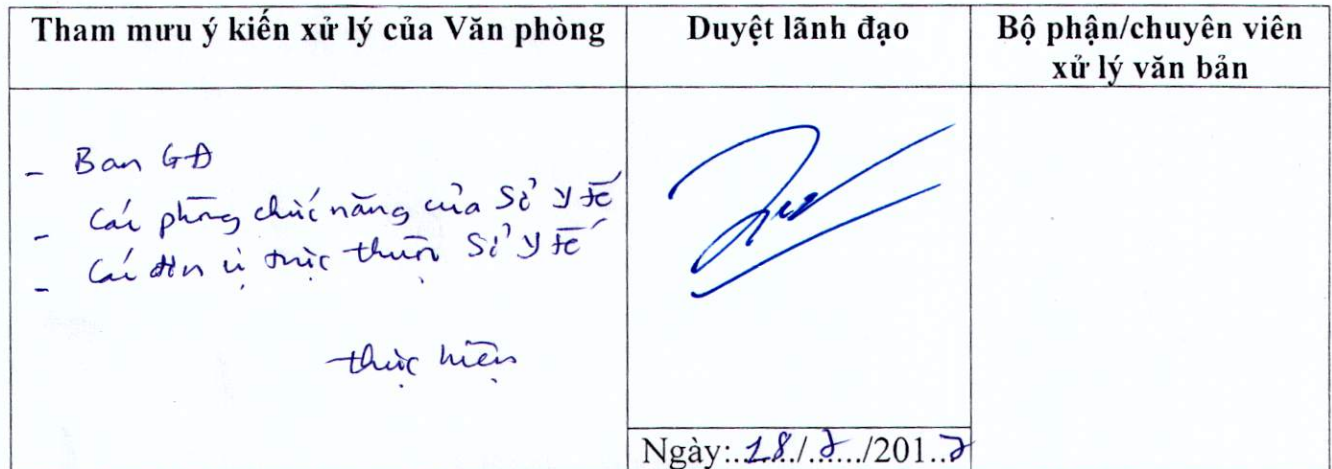 Tham mưu ý kiến xử lý của Văn phòng
Duyệt lãnh đạo
Bộ phận/chuyên viên
xử lý văn bản
- Ban GĐ
- Các phòng chức năng của Sở Y tế
- Các đơn vị trực thuộc Sở Y tế
thực hiện
Ngày:..18./.7.../201..7